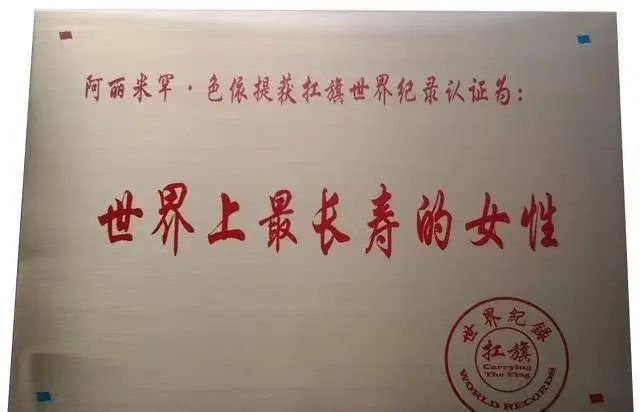 阿丽米罕·色依提获扛旗世界纪录认证为：
世界上最长寿的女性
世界紀錄
扛旗
Carrying
The Flag
WORLD RECORDS